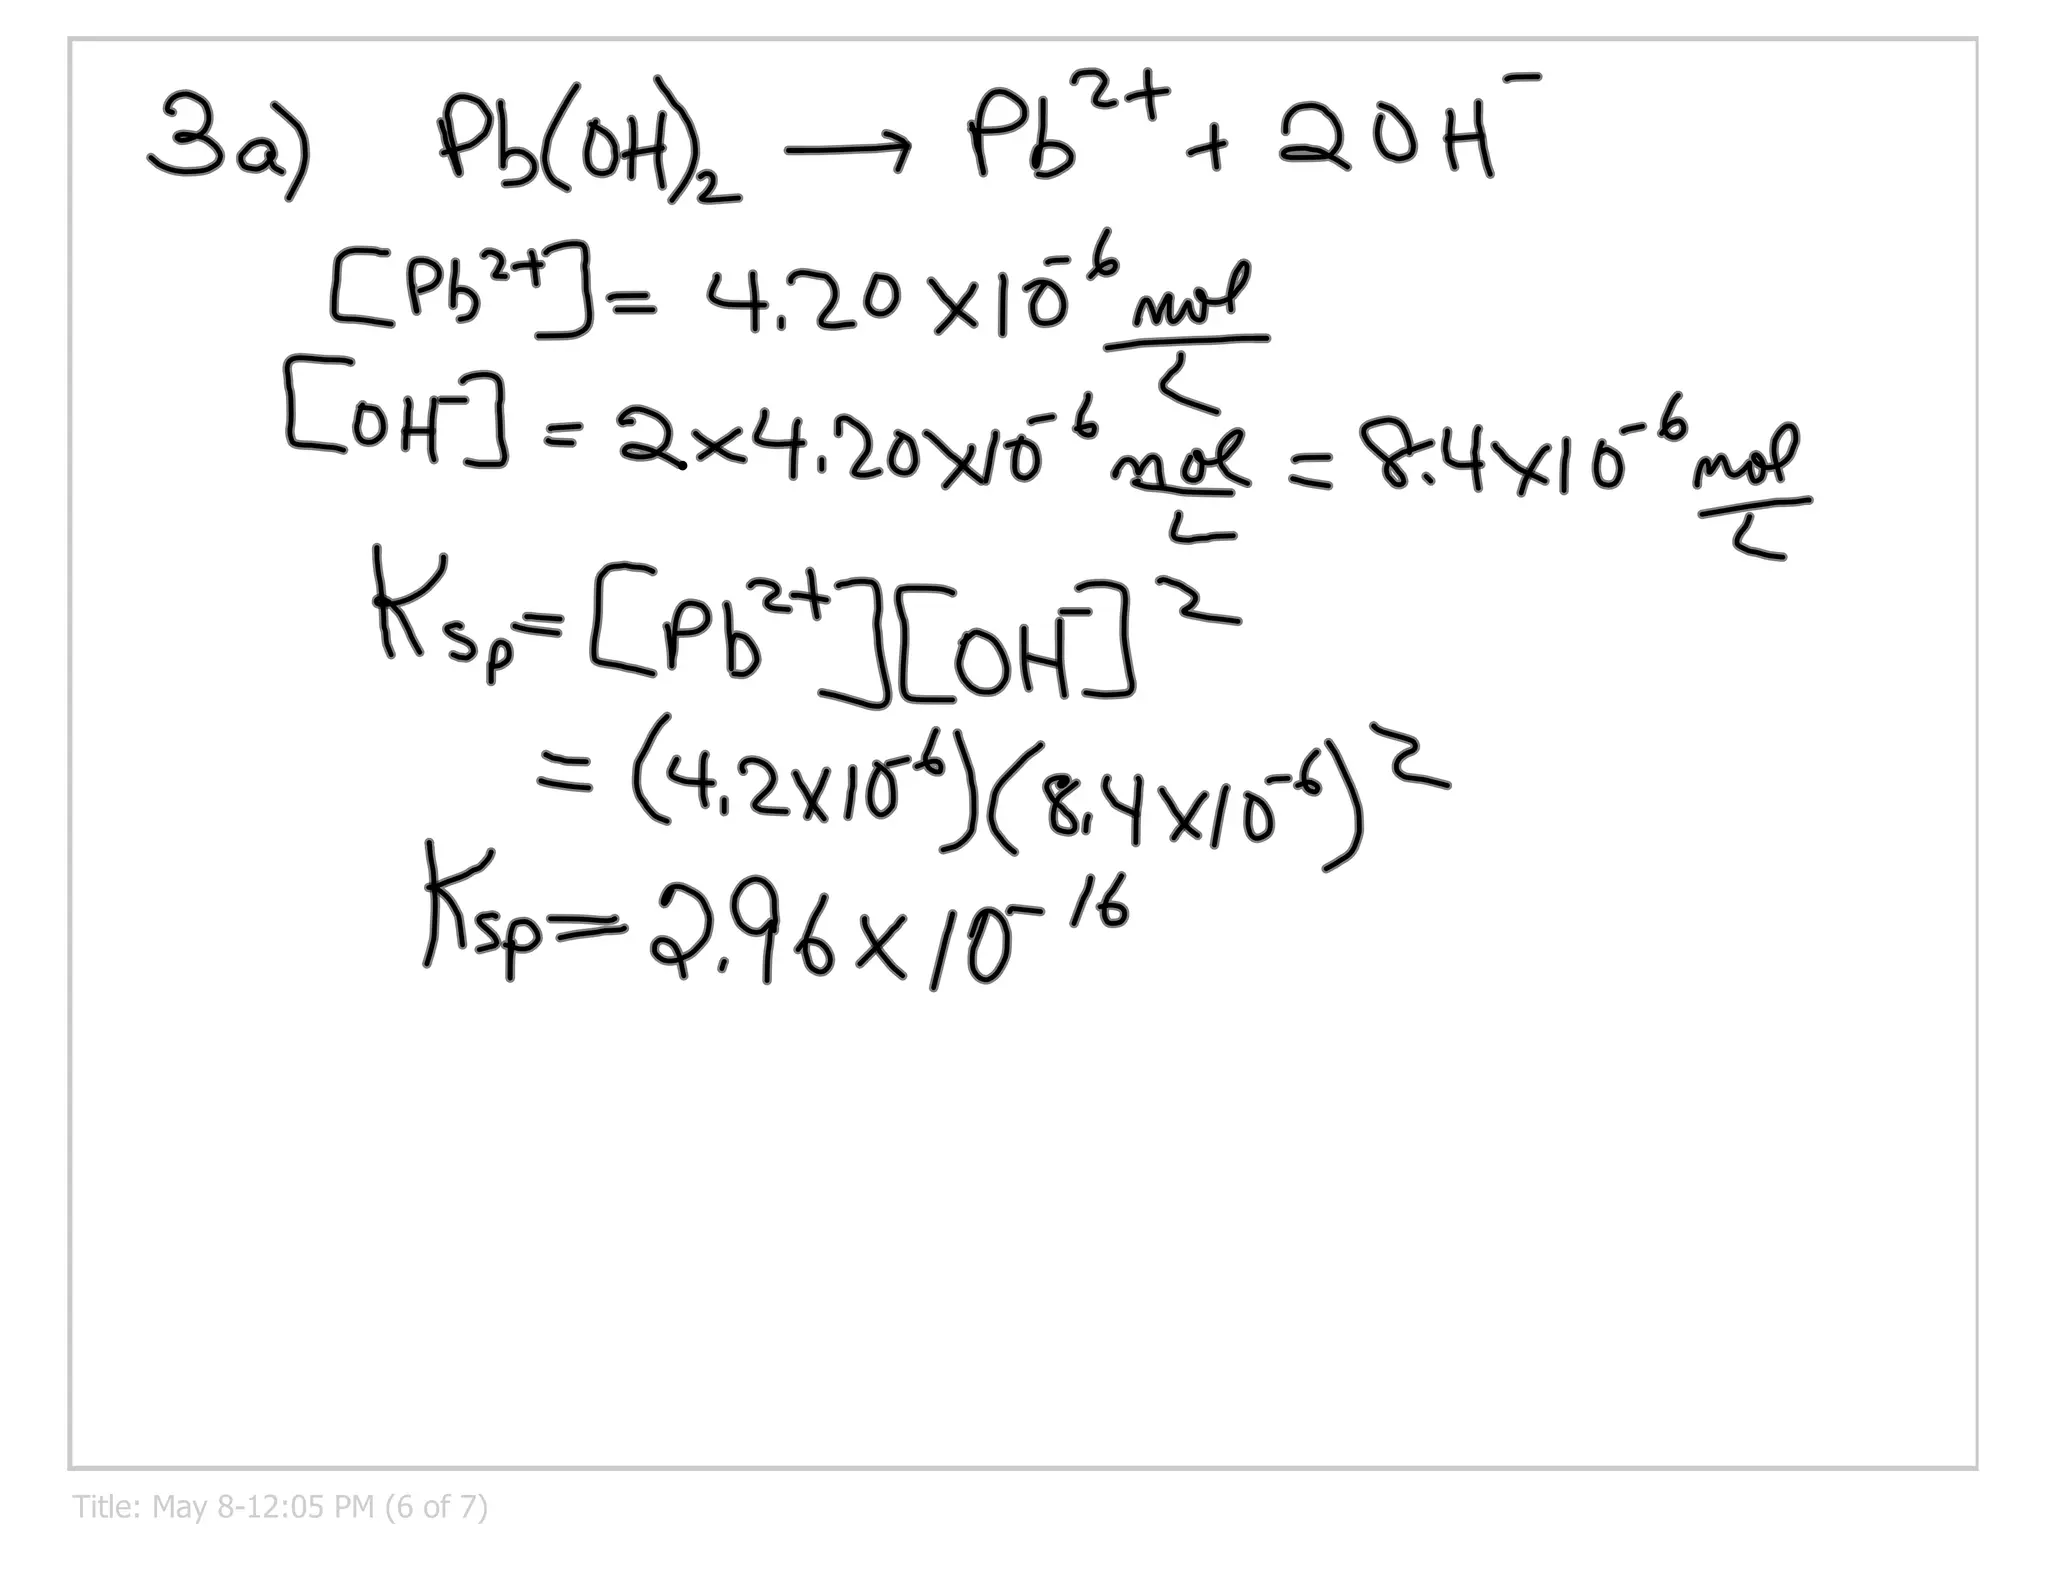 3a) Pb(OH)₂ → Pb²⁺ + 2OH⁻
[Pb²⁺] = 4.20 x 10⁻⁶ mol/L
[OH⁻] = 2 x 4.20 x 10⁻⁶ mol/L = 8.4 x 10⁻⁶ mol/L
Ksp = [Pb²⁺][OH⁻]²
= (4.2 x 10⁻⁶)(8.4 x 10⁻⁶)²
Ksp = 2.96 x 10⁻¹⁶
Title: May 8-12:05 PM (6 of 7)